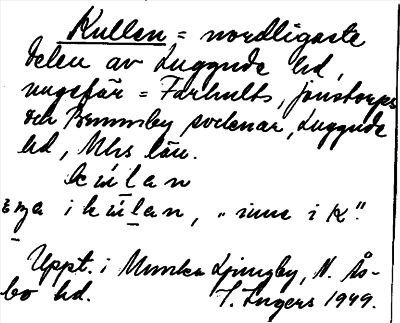 Kullen = nordligaste
delen av Luggude hd,
ungefär = Farhults, Jonstorps
och Brunnby socknar, Luggude
hd, Mhs län.
i
Uppt. i Munka Ljungby, N. Ås-
bo hd. I. Ingers 1949.